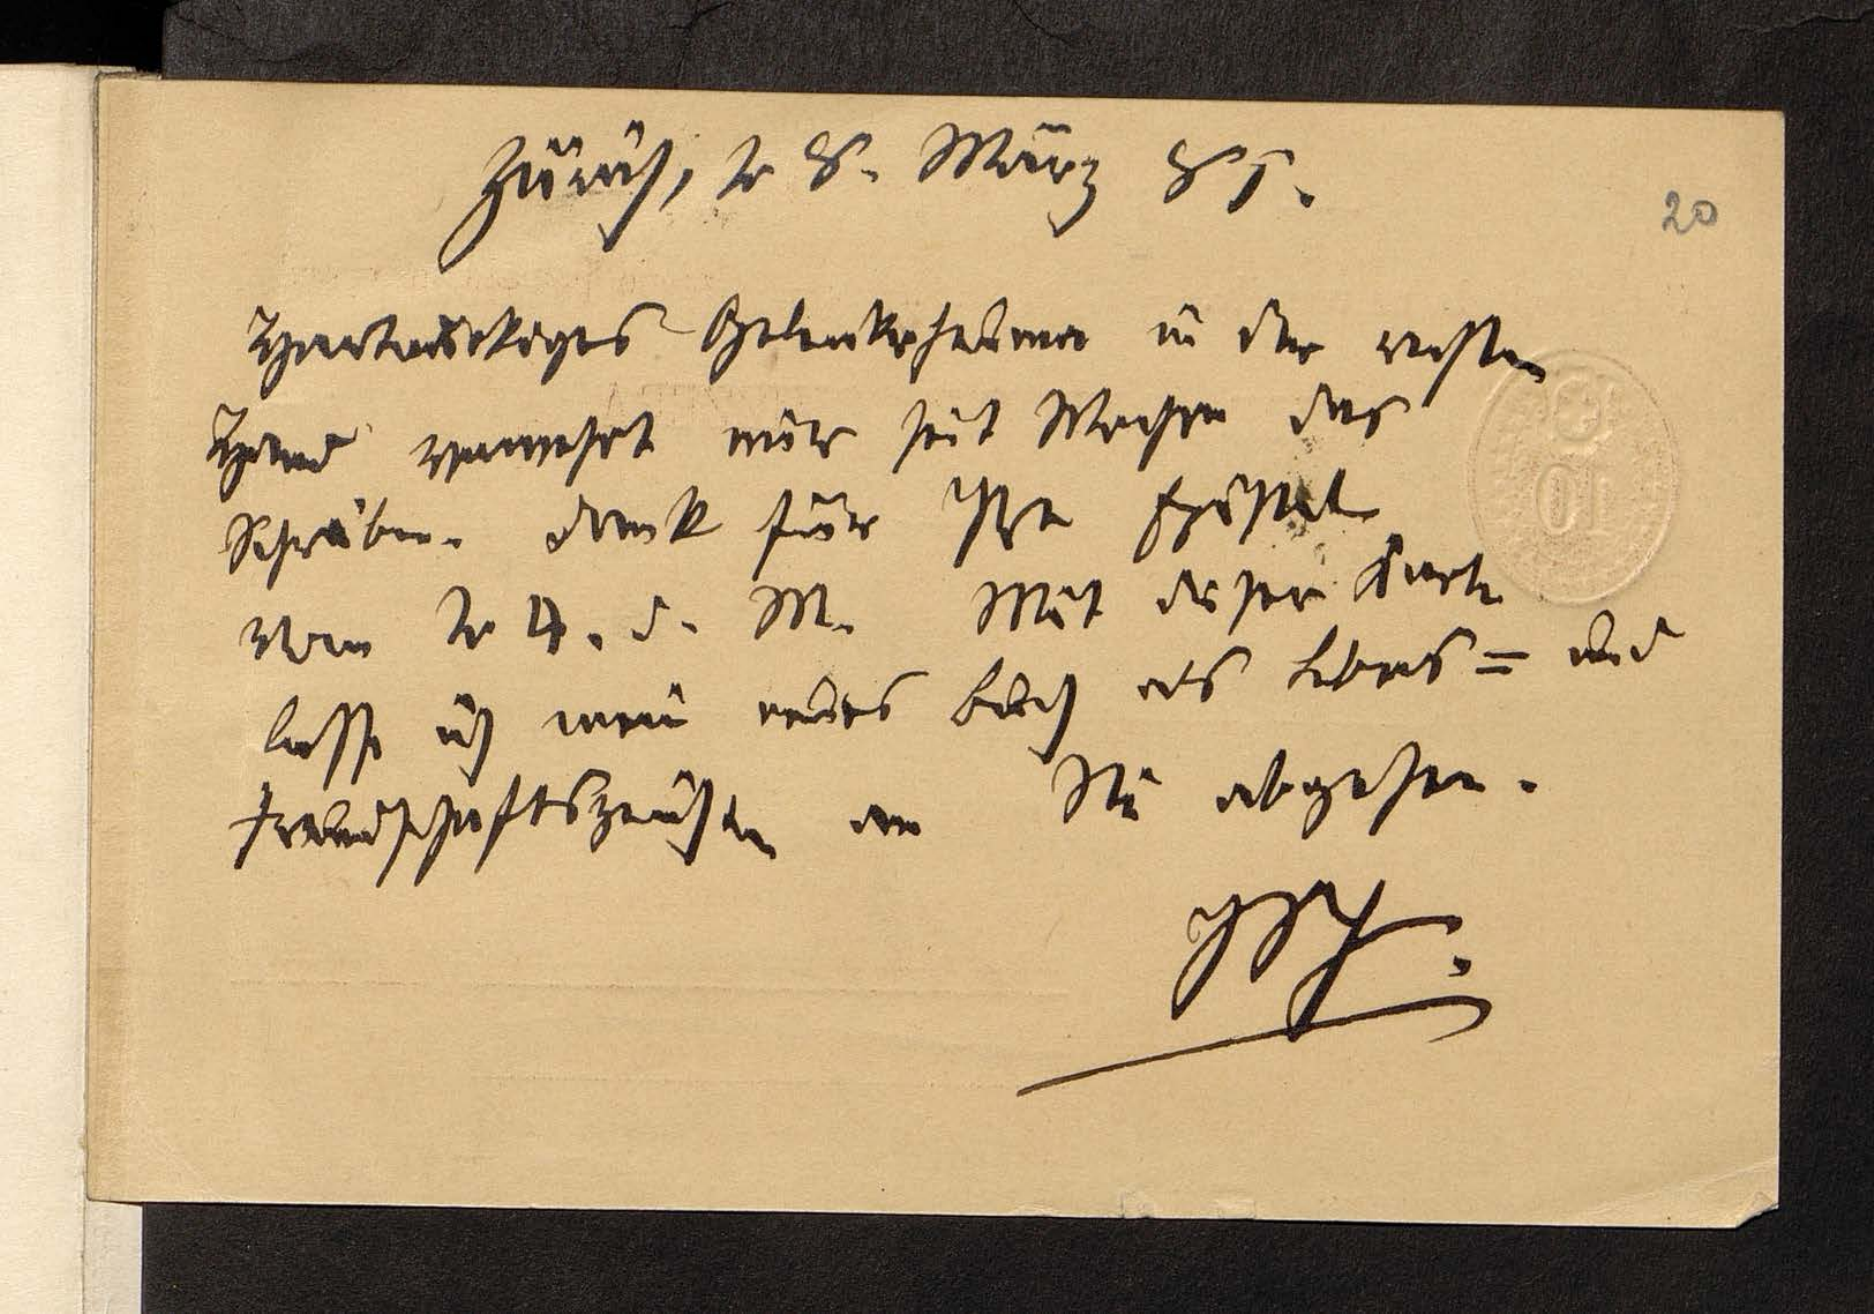 Zürich, d 8. März 85.
20
Hartnäckiges Gelenkrheuma in der rechten
Hand verwehrt mir seit Wochen das
Schreiben. Dank für Ihre Epistel
vom d 4. d. M. Mit dieser Karte
lasse ich mein neues Buch als Lebens= und
Freundschaftszeichen an Sie abgehen.
10